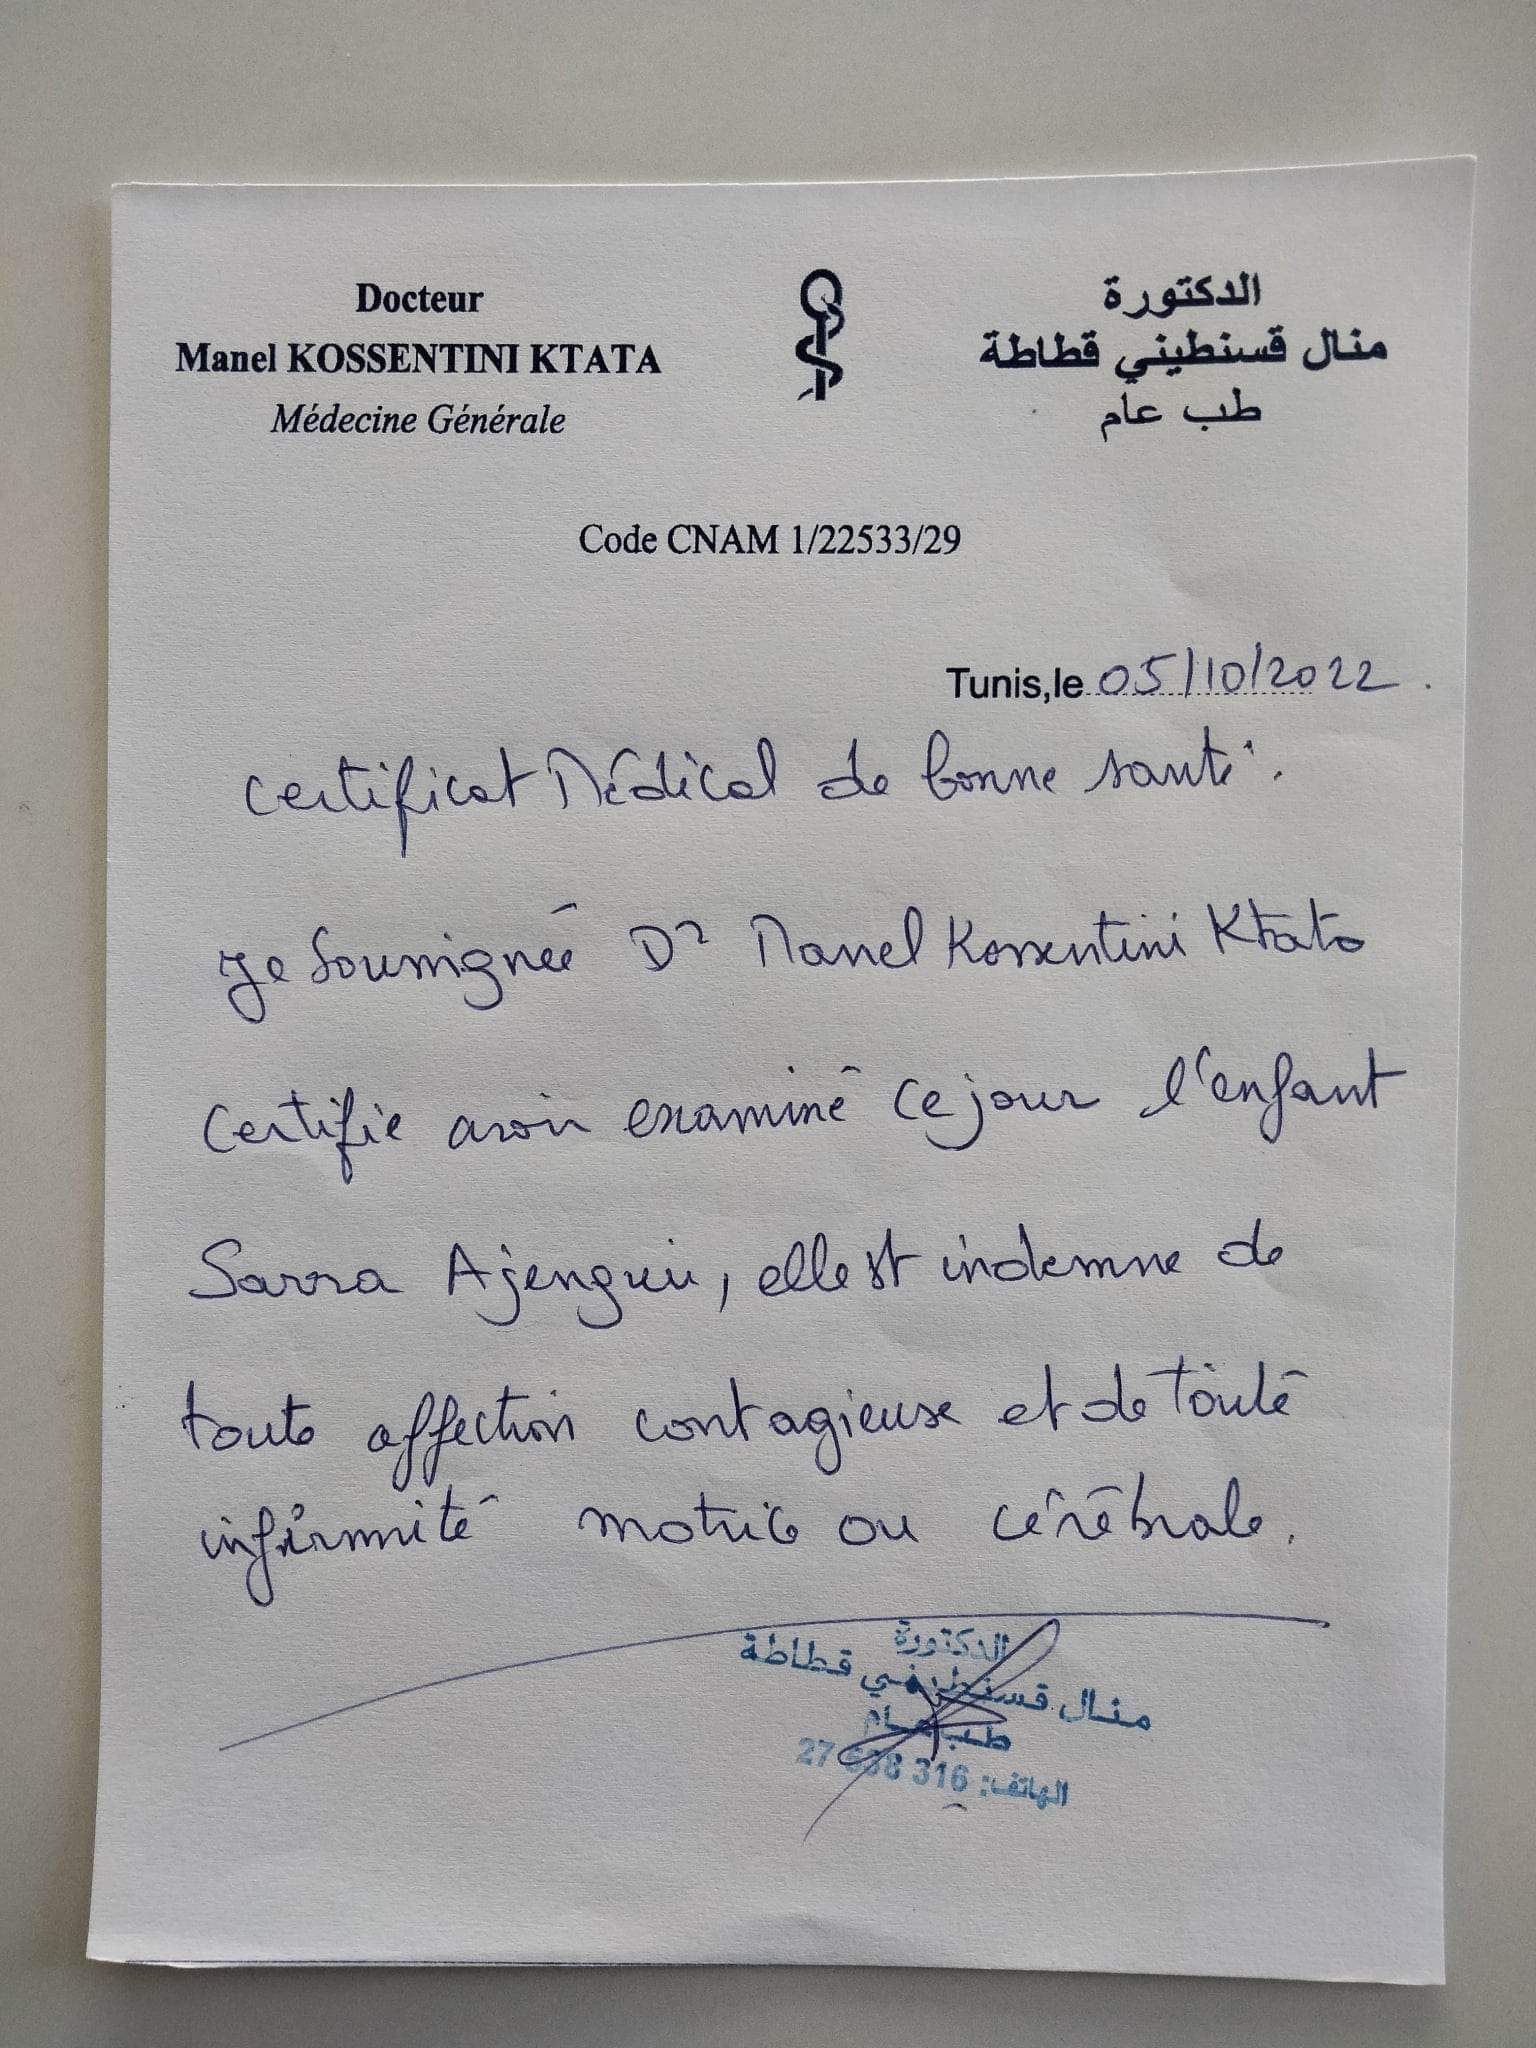 Docteur
Manel KOSSENTINI KTATA
Médecine Générale
الدكتورة
منال قسنطيني قطاطة
طب عام
Code CNAM 1/22533/29
Tunis,le 05/10/2022
Certificat Médical de bonne santé.
Je Soussignée Dr Manel Kossentini Ktata
Certifie avoir examiné ce jour l'enfant
Sarra Ajengui, elle est indemne de
toute affection contagieuse et de toute
infirmité motrice ou cérébrale.
الدكتورة
منال قسنطيني قطاطة
طب عام
الهاتف: 316 27